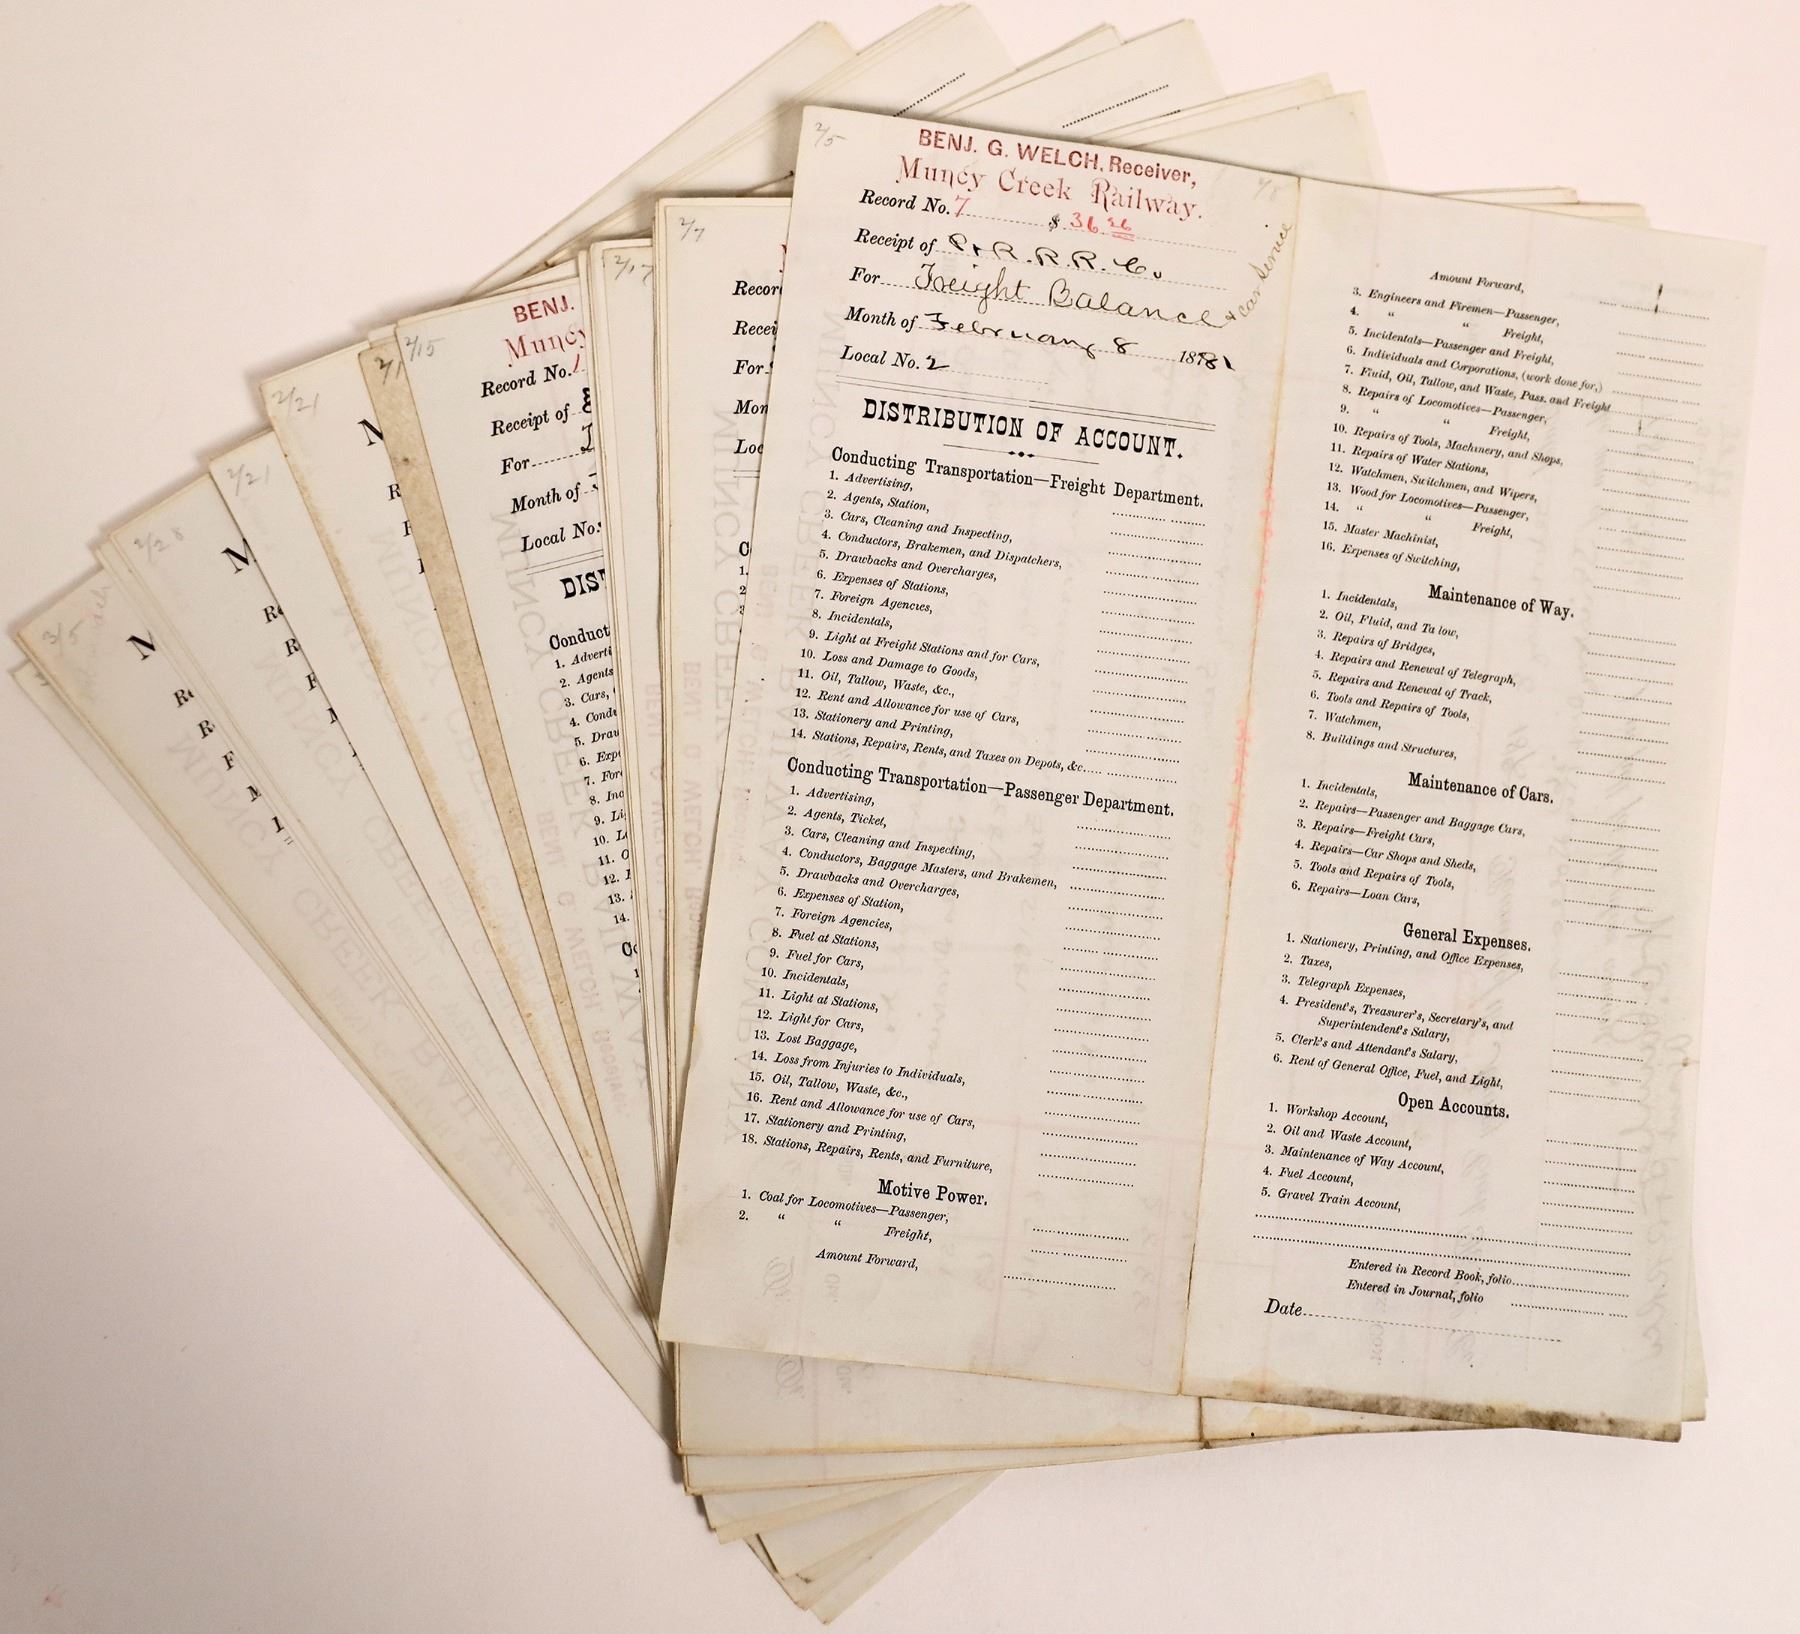 2/5
BENJ. G. WELCH, Receiver,
Muncy Creek Railway.
Record No. 7 $ 36.26
Receipt of P. & R. R. R. Co.
For Freight Balance & Car Service
Month of February 8 1881
Local No. 2
DISTRIBUTION OF ACCOUNT.
Conducting Transportation—Freight Department.
1. Advertising,
2. Agents, Station,
3. Cars, Cleaning and Inspecting,
4. Conductors, Brakemen, and Dispatchers,
5. Drawbacks and Overcharges,
6. Expenses of Stations,
7. Foreign Agencies,
8. Incidentals,
9. Light at Freight Stations and for Cars,
10. Loss and Damage to Goods,
11. Oil, Tallow, Waste, &c.,
12. Rent and Allowance for use of Cars,
13. Stationery and Printing,
14. Stations, Repairs, Rents, and Taxes on Depots, &c.
Conducting Transportation—Passenger Department.
1. Advertising,
2. Agents, Ticket,
3. Cars, Cleaning and Inspecting,
4. Conductors, Baggage Masters, and Brakemen,
5. Drawbacks and Overcharges,
6. Expenses of Station,
7. Foreign Agencies,
8. Fuel at Stations,
9. Fuel for Cars,
10. Incidentals,
11. Light at Stations,
12. Light for Cars,
13. Lost Baggage,
14. Loss from Injuries to Individuals,
15. Oil, Tallow, Waste, &c.,
16. Rent and Allowance for use of Cars,
17. Stationery and Printing,
18. Stations, Repairs, Rents, and Furniture,
Motive Power.
1. Coal for Locomotives—Passenger,
2. “ “ Freight,
Amount Forward,
Amount Forward,
3. Engineers and Firemen—Passenger,
4. “ “ Freight,
5. Incidentals—Passenger and Freight,
6. Individuals and Corporations, (work done for,)
7. Fluid, Oil, Tallow, and Waste, Pass. and Freight
8. Repairs of Locomotives—Passenger,
9. “ “ Freight,
10. Repairs of Tools, Machinery, and Shops,
11. Repairs of Water Stations,
12. Watchmen, Switchmen, and Wipers,
13. Wood for Locomotives—Passenger,
14. “ “ Freight,
15. Master Machinist,
16. Expenses of Switching,
Maintenance of Way.
1. Incidentals,
2. Oil, Fluid, and Ta low,
3. Repairs of Bridges,
4. Repairs and Renewal of Telegraph,
5. Repairs and Renewal of Track,
6. Tools and Repairs of Tools,
7. Watchmen,
8. Buildings and Structures,
Maintenance of Cars.
1. Incidentals,
2. Repairs—Passenger and Baggage Cars,
3. Repairs—Freight Cars,
4. Repairs—Car Shops and Sheds,
5. Tools and Repairs of Tools,
6. Repairs—Loan Cars,
General Expenses.
1. Stationery, Printing, and Office Expenses,
2. Taxes,
3. Telegraph Expenses,
4. President's, Treasurer's, Secretary's, and
Superintendent's Salary,
5. Clerk's and Attendant's Salary,
6. Rent of General Office, Fuel, and Light,
Open Accounts.
1. Workshop Account,
2. Oil and Waste Account,
3. Maintenance of Way Account,
4. Fuel Account,
5. Gravel Train Account,
Entered in Record Book, folio
Entered in Journal, folio
Date
2/7
2/17
2/15
BENJ.
Muncy
Record No.
Receipt of
For
Month of
Local No.
Conduct
2/21
2/21
2/28
3/5